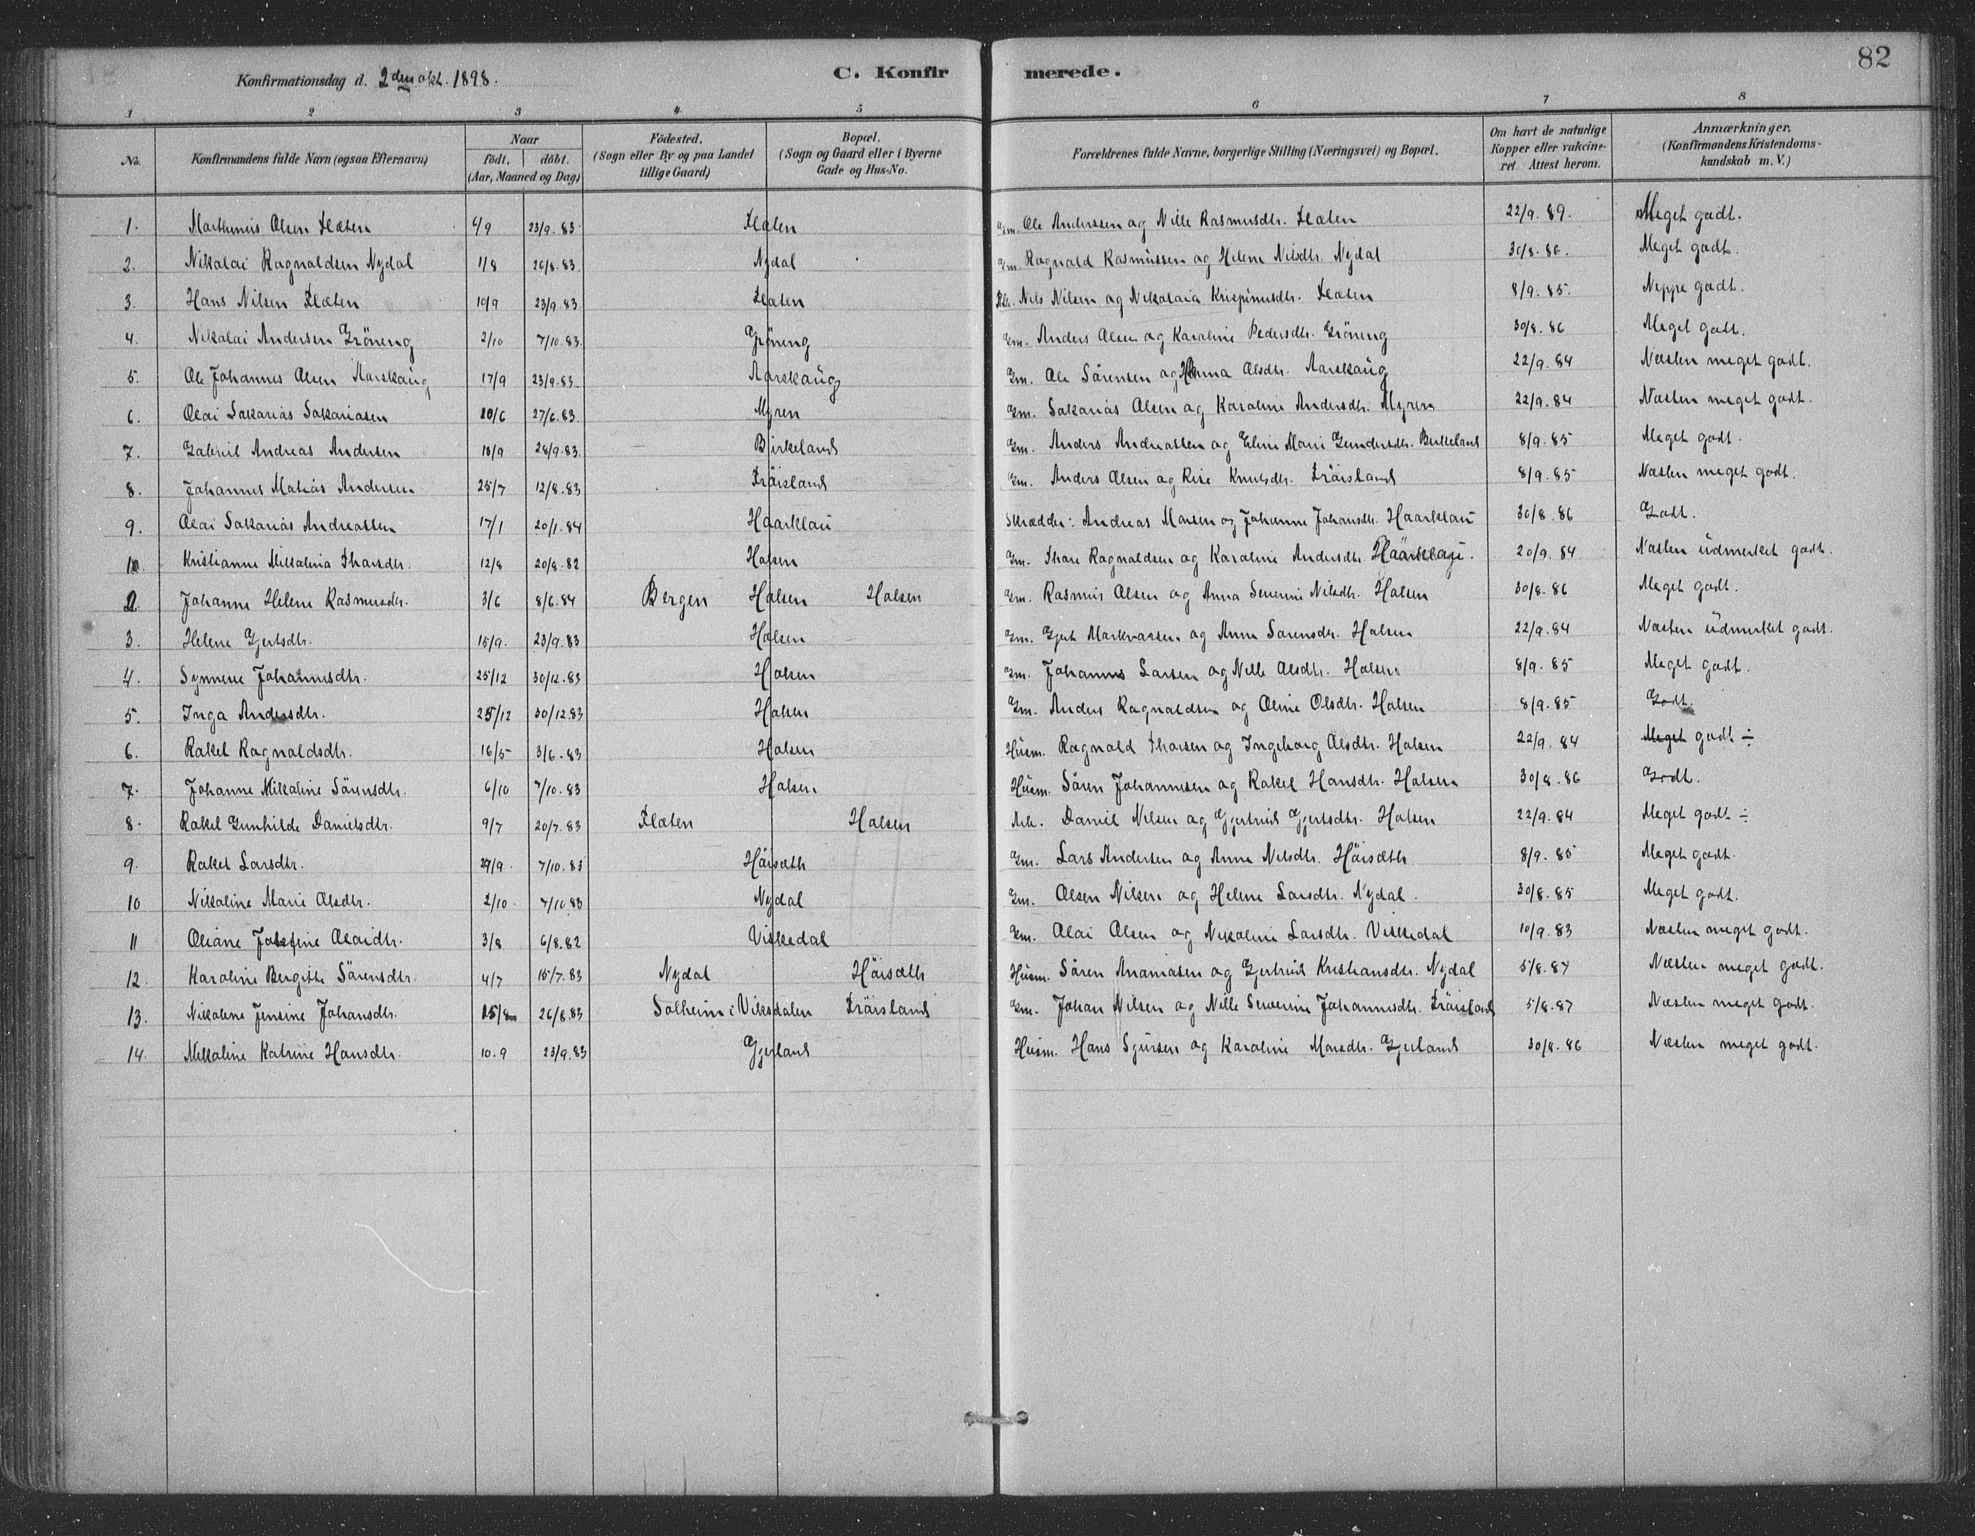 82
Konfirmationsdag d. 2den okt. 1898.
C. Konfirmerede.
1 2 3 4 5 6 7 8
No. | Konfirmandens fulde Navn (ogsaa Efternavn) | Naar födt. | döbt. (Aar, Maaned og Dag) | Födested. (Sogn eller By og paa Landet tillige Gaard) | Bopæl. (Sogn og Gaard eller i Byerne Gade og Hus-No. | Forældrenes fulde Navne, borgerlige Stilling (Næringsvei) og Bopæl. | Om havt de naturlige Kopper eller vakcineret. Attest herom. | Anmærkninger. (Konfirmandens Kristendomskundskab m. V.)
1. Olsen Flæten 4/9 23/9.83 Flæten Gm. Ole Anderssen og Nille Rasmusdtr. Flæten 22/9.89. Meget godt.
2. Nikolai Ragnaldsen Nydal 1/8 26/8.83. Nydal Gm. Ragnald Rasmussen og Helene Nilsdtr. Nydal 30/8.86. Meget godt.
3. Hans Nilsen Flæten 10/9 23/9.83 Flæten Nils Nilsen og Nikolaia Krispinusdtr. Flæten 8/9.85. Neppe godt.
4. Nikolai Andersen Gröneng 2/10 7/10.83. Gröneng Gm. Anders Olsen og Karoline Pedersdtr. Gröneng 30/8.86 Meget godt.
5. Ole Johannes Olsen Aarskaug 17/9 23/9.83. Aarskaug Gm. Ole Sörensen og Anna Olsdtr. Aarskaug 22/9.84 Næsten meget godt.
6. Olai Sakarias Sakariasen 20/6 27/6.83. Myren Gm. Sakarias Olsen og Karoline Andersdtr. Myren 22/9.84 Næsten meget godt.
7. Gabriel Andreas Andersen 18/9 28/9.83. Birkeland Gm. Anders Andreassen og Eline Marie Gundersdtr. Birkeland 8/9.85 Meget godt.
8. Johannes Matias Andersen 25/7 12/8.83 Fröisland Gm. Anders Olsen og Rise Knutsdtr. Fröisland 8/9.85 Næsten meget godt.
9. Olai Sakarias Andreassen 17/1 20/1.84 Haarklau Skrædder: Andreas Monsen og Johanne Johansdtr. Haarklau 30/8.86 Godt.
1. Kristianne Mikalina Thorsdtr. 12/8 20/8.82 Halsen Gm. Thore Ragnaldsen og Karoline Andersdtr. 20/9.84 Næsten üdmerket godt.
2. Johanne Helene Rasmusdtr. 3/6 8/6.84 Bergen Halsen Halsen Gm. Rasmus Olsen og Anna Severine Nilsdtr. Halsen 30/8.86 Meget godt.
3. Helene Gjertsdtr. 15/9. 23/9.83 Halsen Gm. Gjert Markvarsen og Anne Sörensdtr. Halsen 22/9.84 Næsten üdmerket godt.
4. Synneve Johannesdtr. 25/12 30/12.83 Halsen Gm. Johannes Larsen og Nille Olsdtr. Halsen 8/9.85 Meget godt.
5. Inga Andersdtr. 25/12 30/12.83 Halsen Gm. Anders Ragnaldsen og Oline Olsdtr. Halsen 8/9.85 Godt.
6. Rakel Ragnaldsdtr. 16/5 3/6.83 Halsen Husm. Ragnald Thorsen og Ingeborg Olsdtr. Halsen 22/9.84 Meget godt ÷
7. Johanne Mikaline Sörensdtr. 6/10 7/10.83 Halsen Husm. Sören Johannesen og Rakel Hansdtr. Halsen 30/8.86 Godt.
8. Rakel Gunhilde Danielsdtr. 9/7 20/7.83 Flæten Halsen Arb. Daniel Nilsen og Gjertrud Gjertsdtr. Halsen 22/9.84 Meget godt ÷
9. Rakel Larsdtr. 29/9. 7/10.83 Höisæth Gm. Lars Andersen og Anne Nilsdtr. Höisæth 8/9.85 Meget godt.
10 Nikoline Marie Olsdtr. 2/10. 7/10 83 Nydal Gm. Olsen Nilsen og Helene Larsdtr. Nydal. 30/8.85 Meget godt.
11 Oliane Josefine Olaidtr. 3/8 6/8.82 Viksedal Gm. Olai Olsen og Nikoline Larsdtr. Viksedal 10/9.83 Næsten meget godt.
12. Karoline Bergithe Sörensdtr. 4/7 15/7.83 Nydal Höisæth Husm. Sören Ananiasen og Gjertrud Kristiansdtr. Nydal 5/8.87 Næsten meget godt.
13. Nikoline Jensine Johansdtr. 25/8 26/8.83 Solheim i Viksdalen Fröisland Gm. Johan Nilsen og Nille Severine Johannesdtr. Fröisland 5/8.87 Næsten meget godt.
14. Mikaline Katrine Hansdtr. 10.9 23/9.83 Gjerland Husm. Hans Sjursen og Karoline Monsdtr. Gjerland 30/8.86 Næsten meget godt.